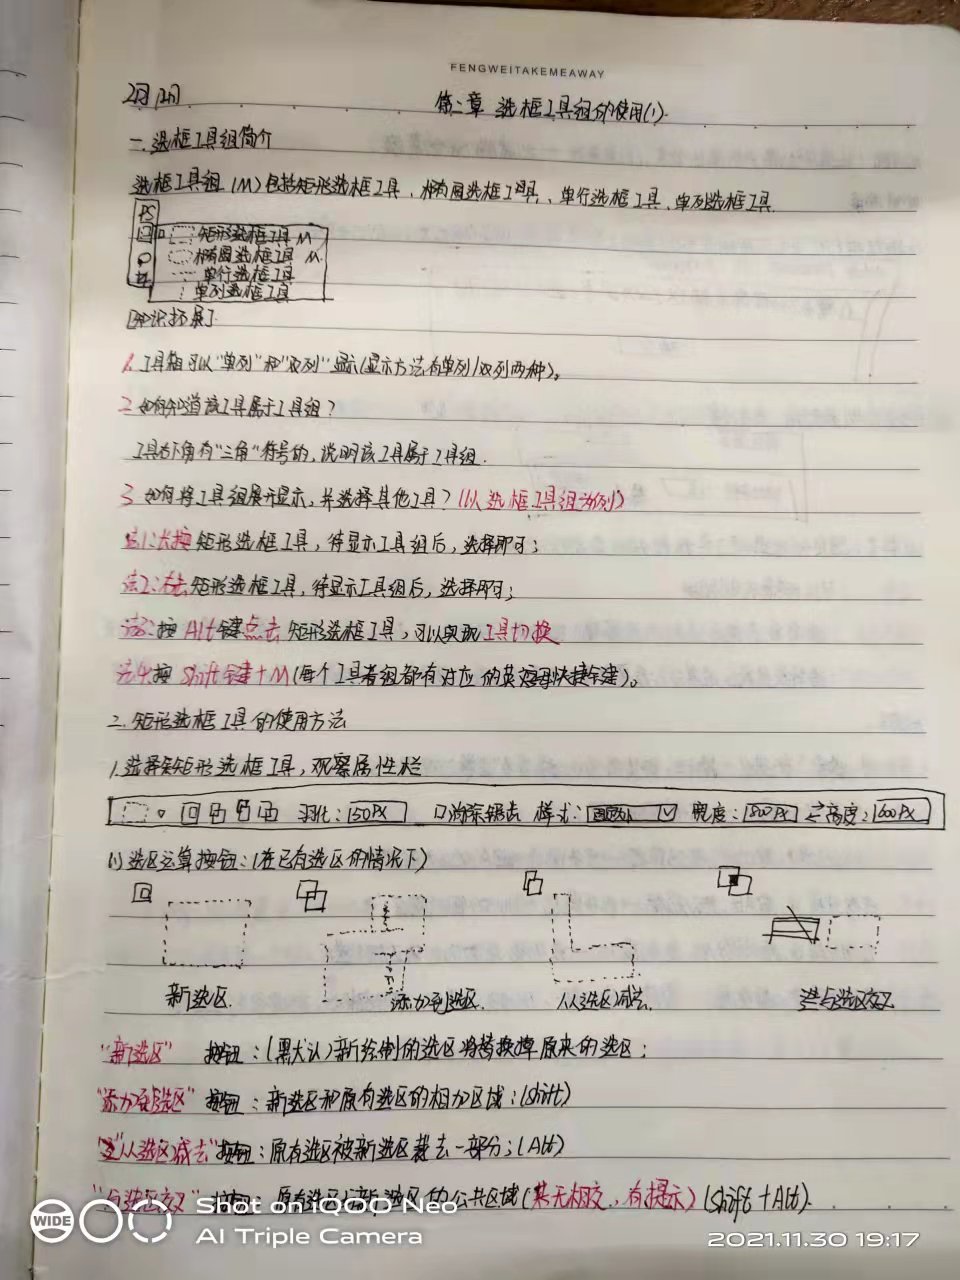 FENGWEITAKEMEAWAY
第二章 选框工具组的使用(1).
一.选框工具组简介
选框工具组(M)包括矩形选框工具、椭圆选框工具、单行选框工具、单列选框工具.
PS
矩形选框工具 M
椭圆选框工具 M
单行选框工具
单列选框工具
[知识拓展]
1.工具箱可以"单列"和"双列"显示(显示方法有单列/双列两种)。
2 如何知道该工具属于工具组?
工具右下角有"三角"符号的,说明该工具属于工具组.
3 如何将工具组展开显示,并选择其他工具?(以选框工具组为例)
法1:长按矩形选框工具,待显示工具组后,选择即可;
法2:右击矩形选框工具,待显示工具组后,选择即可;
法3:按 Alt键点击 矩形选框工具,可以实现工具切换
法4:按 Shift键+M(每个工具者组都有对应的英语母快捷键)。
二.矩形选框工具的使用方法
1.选择矩形选框工具,观察属性栏
羽化:50PX 口消除锯齿 样式: 宽度:800PX ⇌高度:600PX
(1)选区运算按钮:(在已有选区的情况下)
新选区. 添加到选区. 从选区减去. 选与选区交叉
"新选区" 按钮:(默认)新绘制的选区将替换掉原来的选区;
"添加到选区" 按钮:新选区和原有选区的相加区域;(Shift)
"从选区减去"按钮:原有选区被新选区裁去一部分;(Alt)
"与选区交叉" 按钮:原有选区与新选区的公共区域(若无相交,有提示)(Shift+Alt).
WIDE
Shot on LOGO QUAD Neo
AI Triple Camera
2021.11.30 19:17